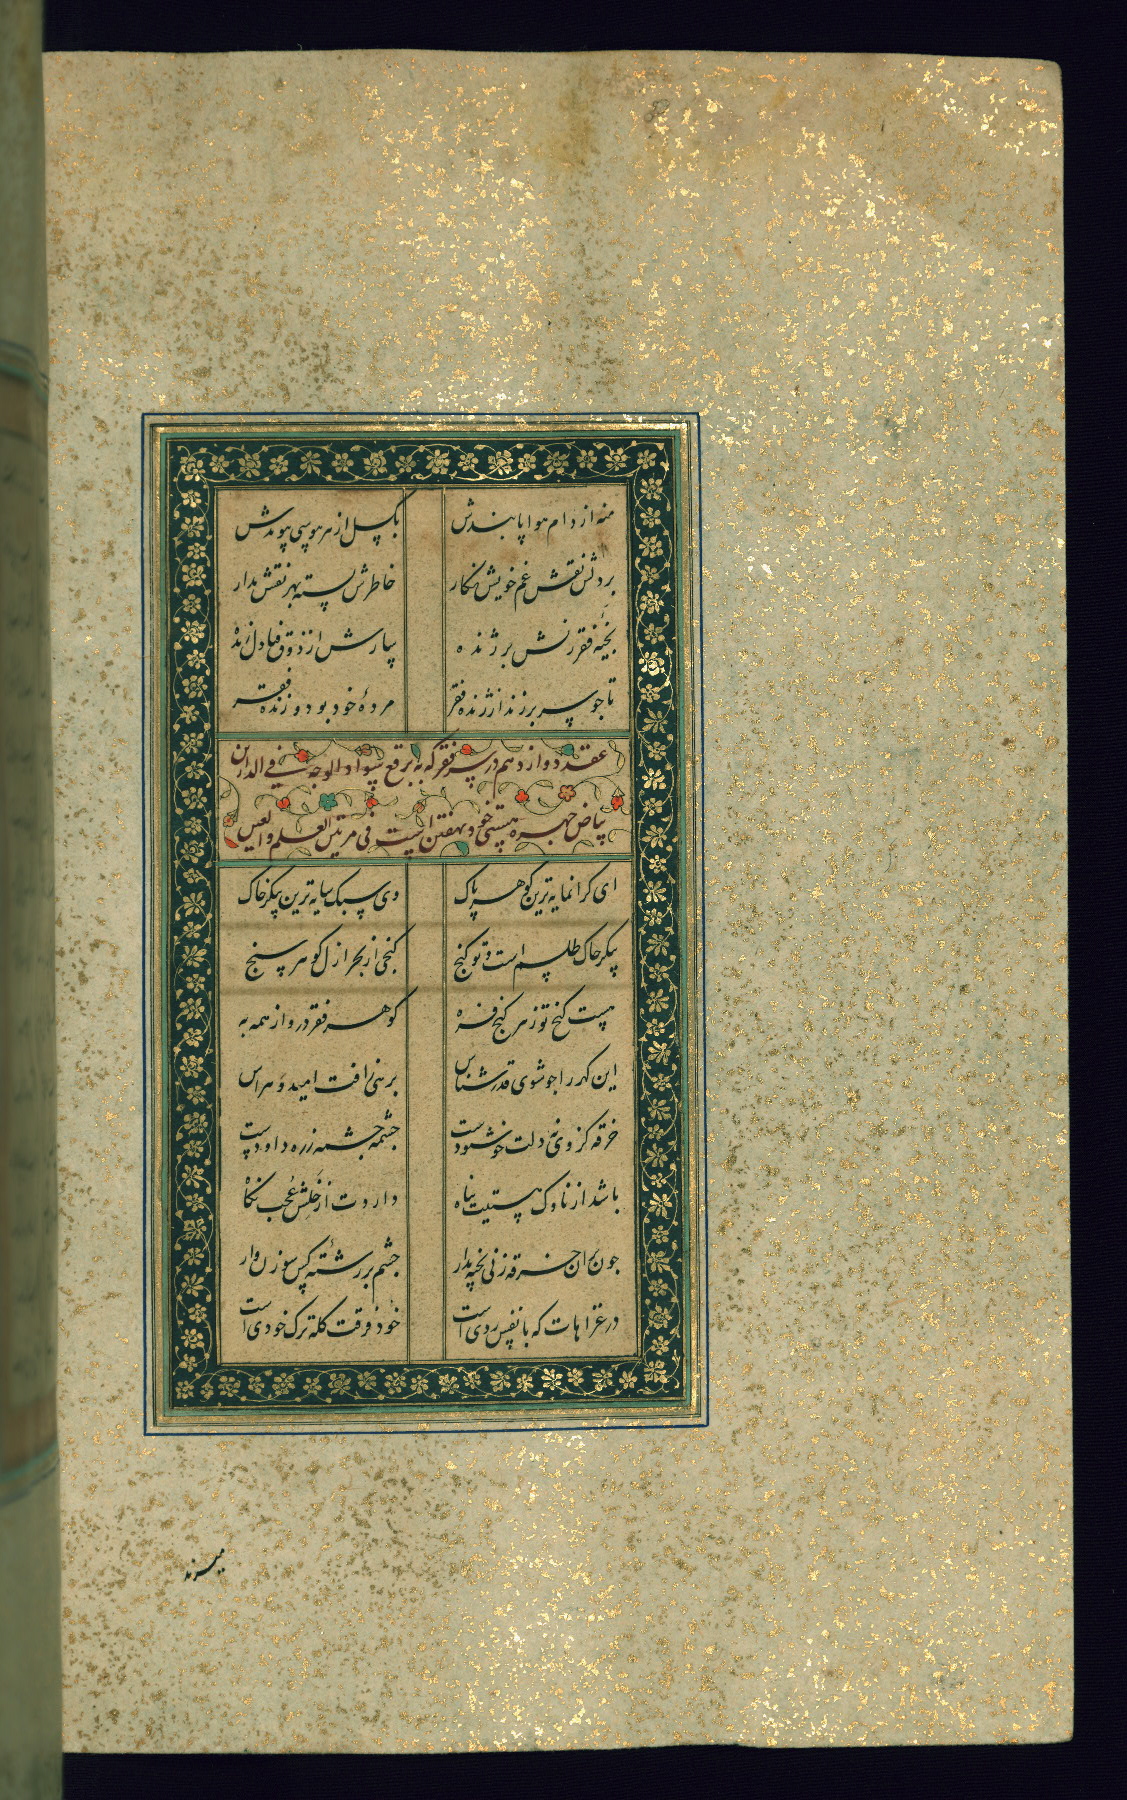 منه از دام هوا پابندش بگسل از هر هوسی پیوندش
بر دلش نقش غم خویش نگار خاطرش بسته بهر نقش مدار
بخیه فقر زنش بر ژنده بیارش از ذوق فنا دل زنده
تا چو سر بر زند از ژنده فقر مرده خود بود و زنده فقر
عقد دوازدهم در سر فقر که به برقع سواد الوجه فی الدارین
بیاض چهره هستی خود نهفتن است فی مرتبتی العلم والعین
ای گرانمایه‌ترین گوهر پاک وی سبک سایه‌ترین پیکر خاک
پیکر خاک طلسم است و تو گنج گنجی از بحر ازل گوهر سنج
هست گنج تو ز هر گنج فره گوهر فقر درو از همه به
این گهر را چو شوی قدرشناس برهی از آفت امید و هراس
خرقه کز وی نه دلت خوشنودست چشمه چشمه زره داودست
باشد از ناوک هستیت پناه داردت از خلش عجب نگاه
چون بران خرقه زنی بخیه بدار چشم بر رشته کس سوزن‌وار
در غزاهات که با نفس ردی است خود فرقت کله ترک خودی است
میزند